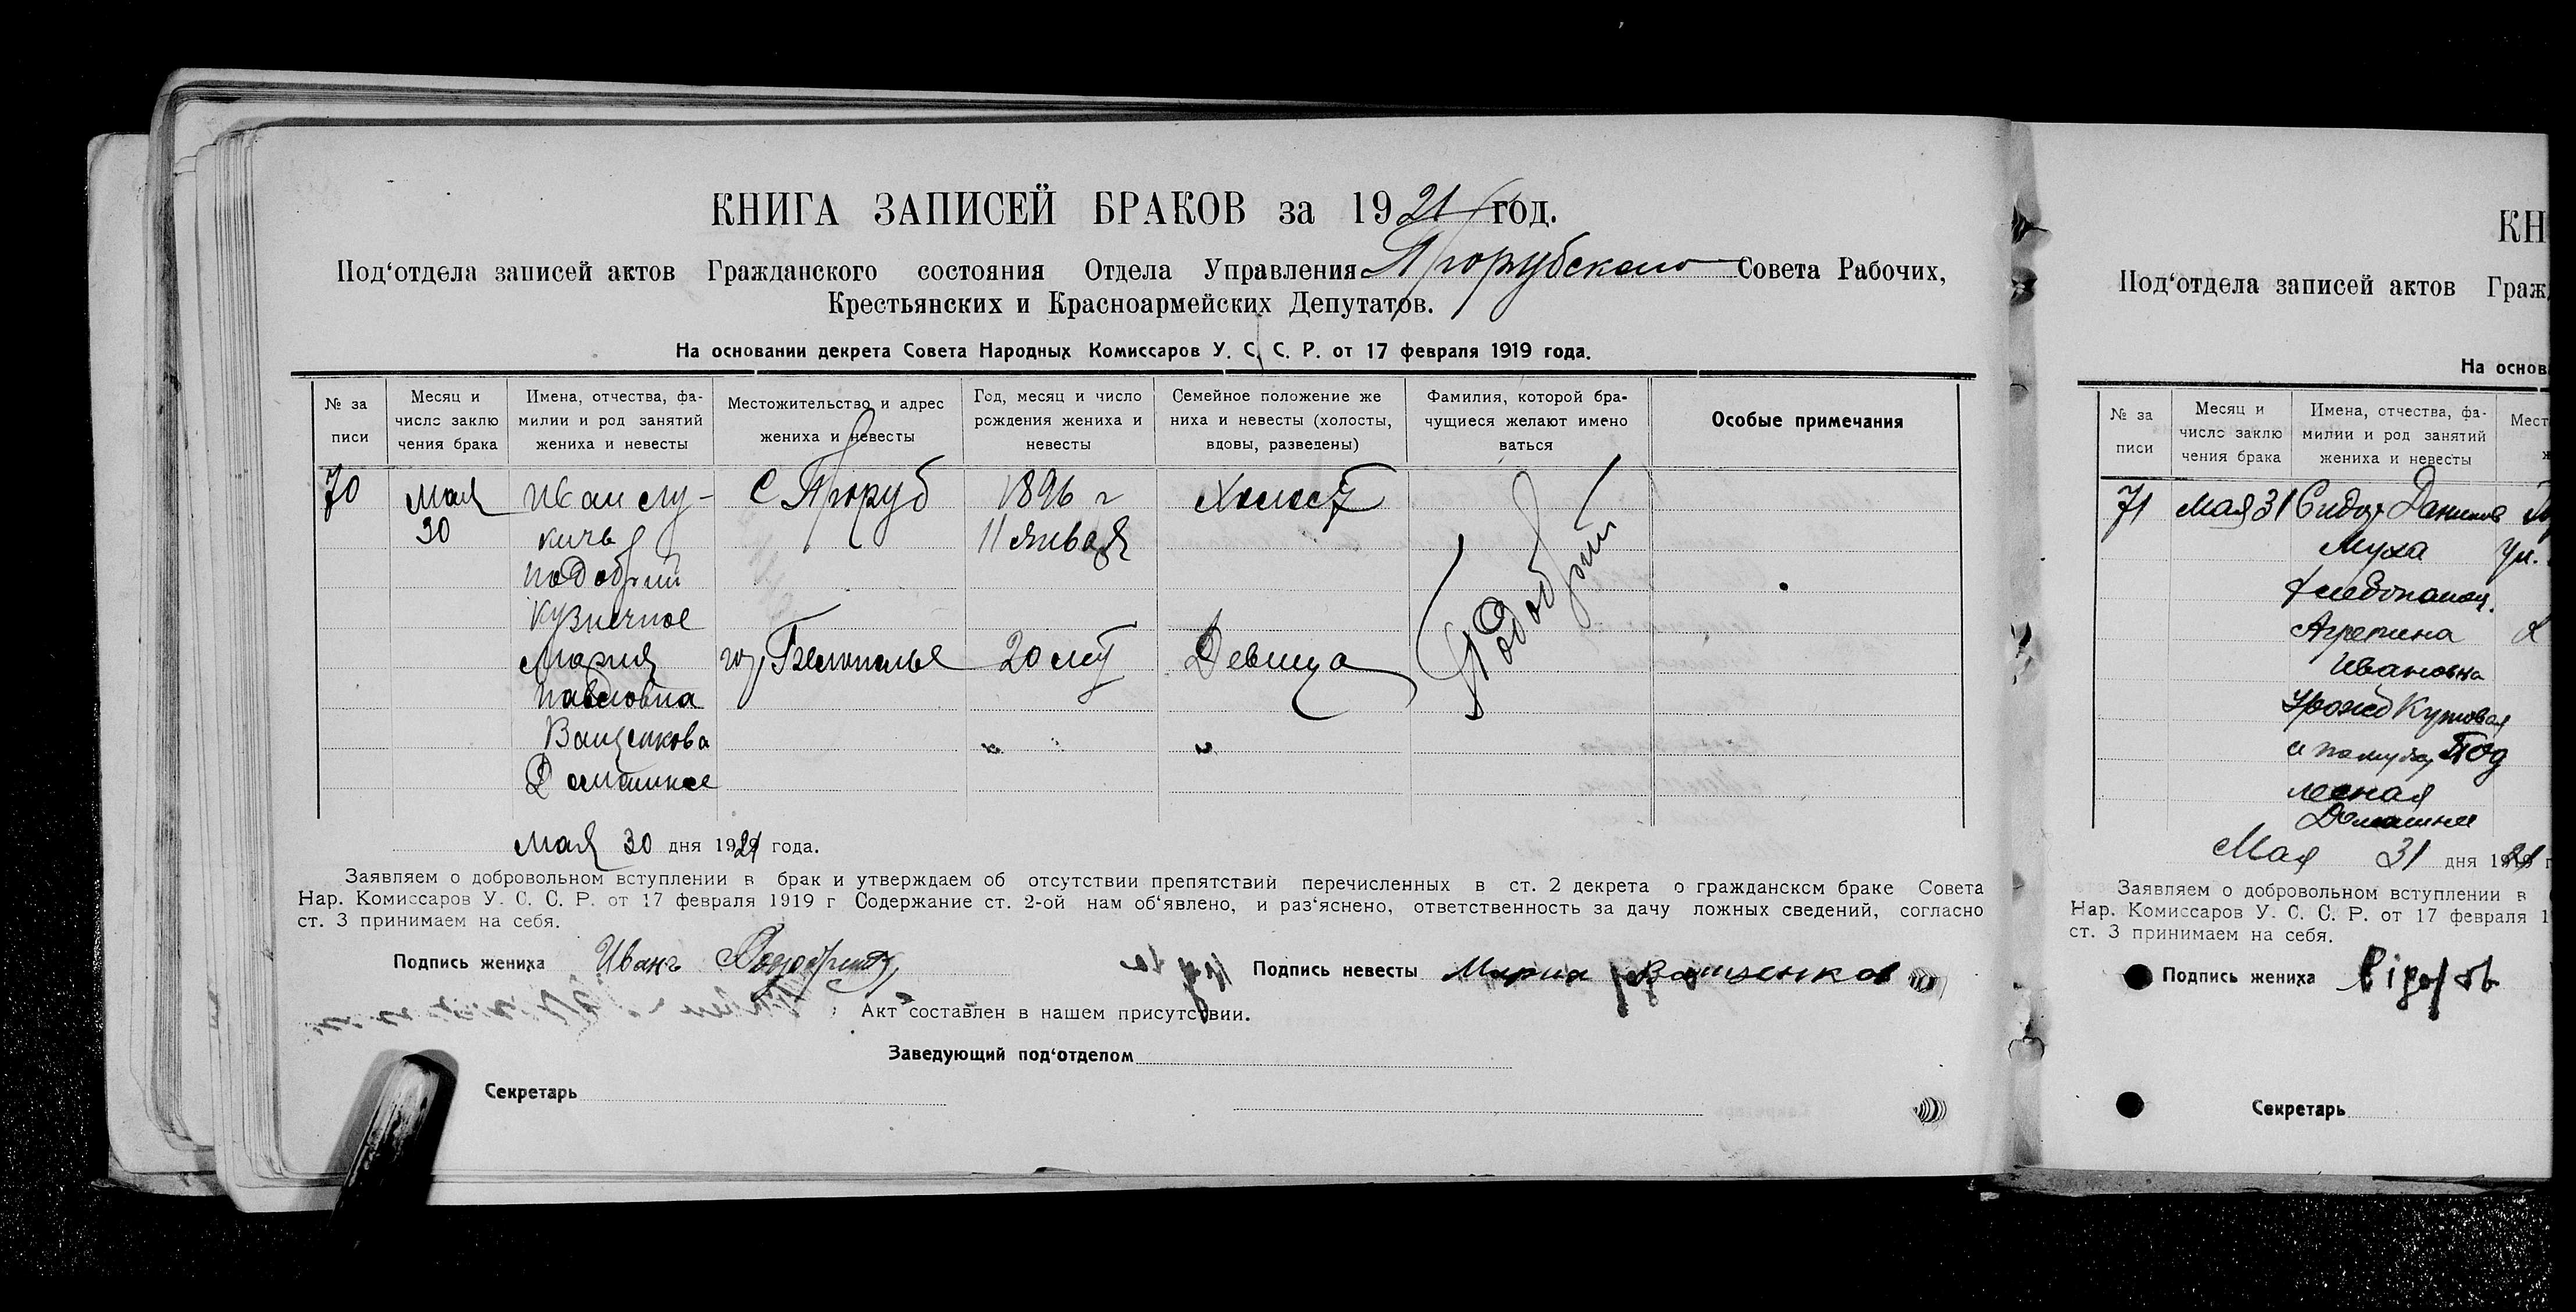 КНИГА ЗАПИСЕЙ БРАКОВ за 1921 год.
Под‘отдела записей актов Гражданского состояния Отдела Управления Прорубского Совета Рабочих,
Крестьянских и Красноармейских Депутатов.
На основании декрета Совета Народных Комиссаров У. С. С. Р. от 17 февраля 1919 года.
№ за писи
Месяц и число заклю чения брака
Имена, отчества, фа- милии и род занятий жениха и невесты
Местожительство и адрес жениха и невесты
Год, месяц и число рождения жениха и невесты
Семейное положение же ниха и невесты (холосты, вдовы, разведены)
Фамилия, которой бра- чущиеся желают имено ваться
Особые примечания
70 Мая Иван Лу- С Проруб 1896 г Холост
30 кичь 11 января
Подобрий Подобрий
Кузнечное
Мария гор Белополье 20 лет Девица
Павловна
Ващенкова " " "
Домашнее
Мая 30 дня 1921 года.
Заявляем о добровольном вступлении в брак и утверждаем об отсутствии препятствий перечисленных в ст. 2 декрета о гражданском браке Совета
Нар. Комиссаров У. С. С. Р. от 17 февраля 1919 г Содержание ст. 2-ой нам об‘явлено, и раз‘яснено, ответственность за дачу ложных сведений, согласно
ст. 3 принимаем на себя.
Подпись жениха Иванъ Подобрий Подпись невесты Мария Ващенков
Акт составлен в нашем присутствии.
Заведующий под‘отделом
Секретарь
КН
Под‘отдела записей актов Граж
На основ
№ за писи
Месяц и число заклю чения брака
Имена, отчества, фа- милии и род занятий жениха и невесты
Мест
71 Мая 31 Сидор Данилов
Муха ул.
Хлебопашец
Агрепина
Ивановна
Урожд Кутовая
а по мужу Под
лесная
Домашнее
Мая 31 дня 1921 г
Заявляем о добровольном вступлении в
Нар. Комиссаров У. С. С. Р. от 17 февраля 1
ст. 3 принимаем на себя.
Подпись жениха
Секретарь